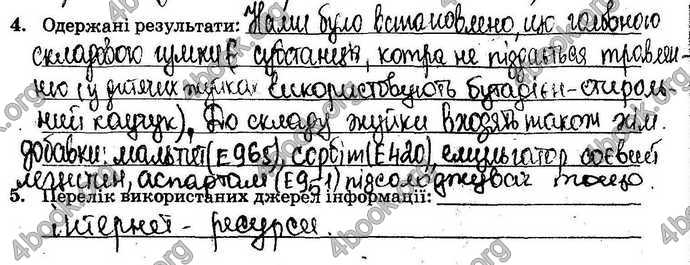 4. Одержані результати: Нами було встановлено, що головною
складовою гумки є субстанція, котра не піддається травлен-
ню (у дитячих жуйках використовують бутадієн-стироль-
ний каучук). До складу жуйки входять також хім.
добавки: мальтит (Е965), сорбіт (Е420), емульгатор соєвий
лецитин, аспартам (Е951) підсолоджувач тощо.
5. Перелік використаних джерел інформації:
інтернет - ресурси.
4book.org